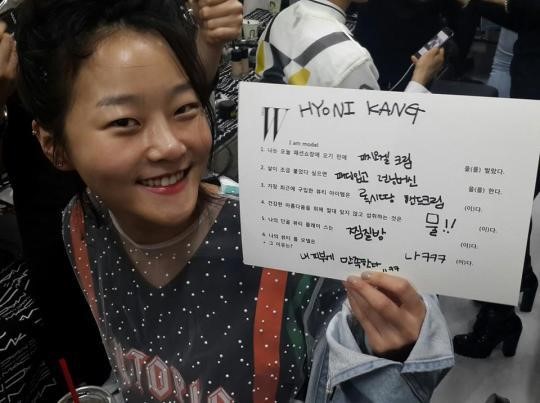 HYONI KANG
W
I am model
1. 나는 오늘 패션쇼장에 오기 전에 파시오넬 크림 을(를) 발랐다.
2. 살이 조금 붙었다 싶으면 패딩입고 러닝머신 을(를) 한다.
3. 가장 최근에 구입한 뷰티 아이템은 록시땅 핸드크림 (이)다.
4. 건강한 아름다움을 위해 절대 잊지 않고 섭취하는 것은 물!! (이)다.
5. 나의 단골 뷰티 플레이스는 찜질방 (이)다.
6. 나의 뷰티 롤 모델은 나ㅋㅋㅋ (이)다.
* 그 이유는? 내 피부에 만족한다 ㅋㅋ